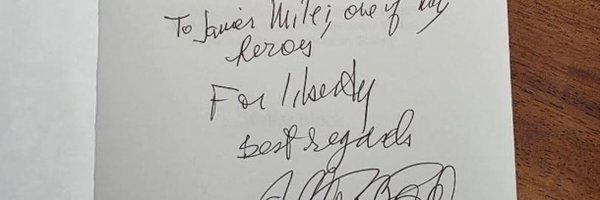 To Javier Milei, one of my
heroes
For liberty
best regards